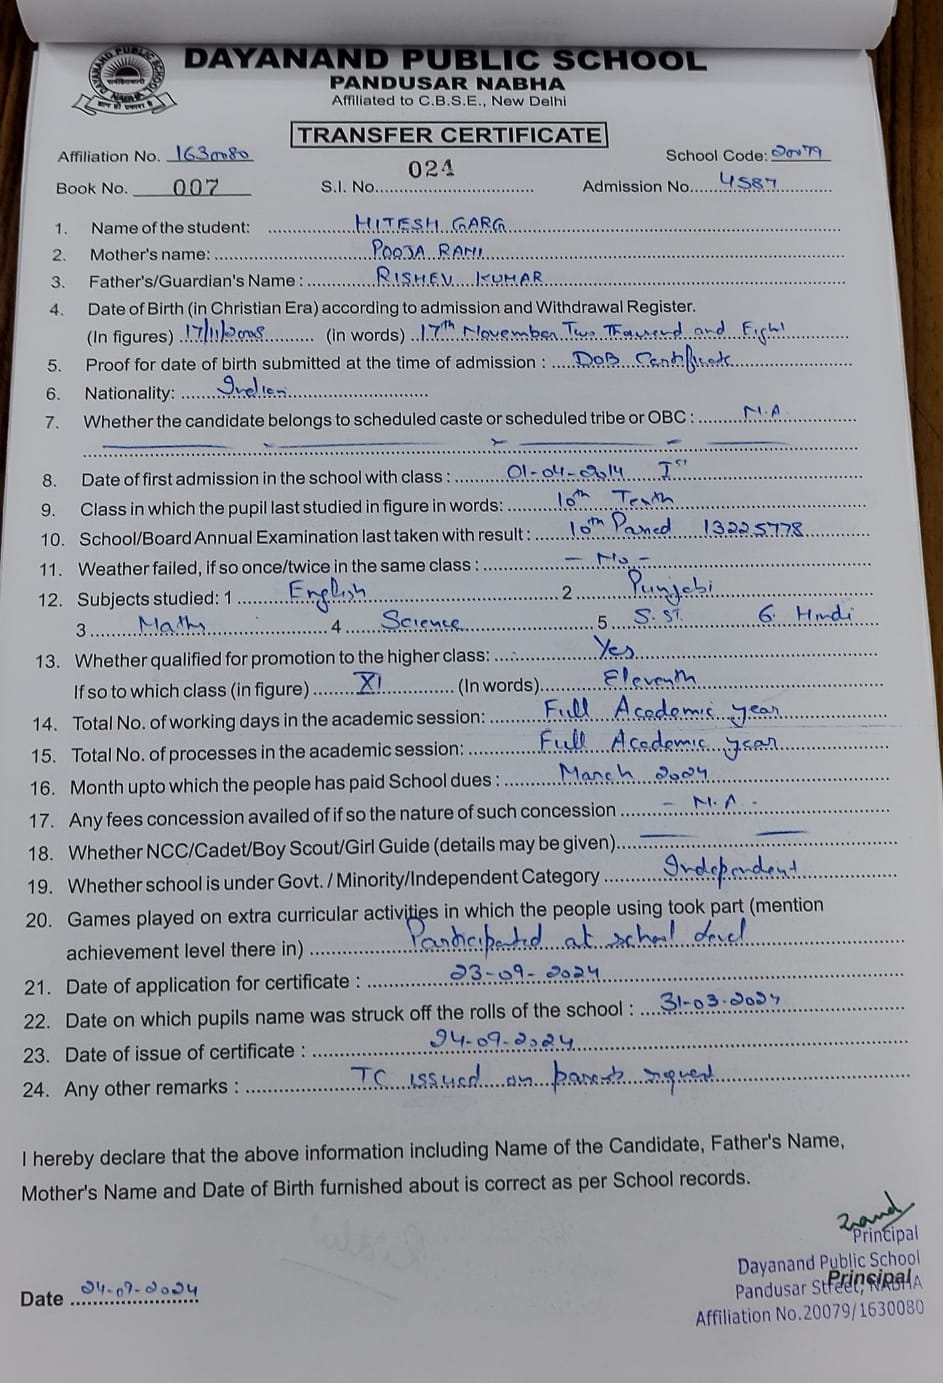 DAYANAND PUBLIC SCHOOL
PANDUSAR NABHA
Affiliated to C.B.S.E., New Delhi
TRANSFER CERTIFICATE
Affiliation No. 1630080 School Code: 20079
Book No. 007 S.I. No. 024 Admission No. 4587
1. Name of the student: HITESH GARG
2. Mother's name: POOJA RANI
3. Father's/Guardian's Name : RISHEV KUMAR
4. Date of Birth (in Christian Era) according to admission and Withdrawal Register.
(In figures) 17/11/2008 (in words) 17th November Two Thousand and Eight
5. Proof for date of birth submitted at the time of admission : DOB Certificate
6. Nationality: Indian
7. Whether the candidate belongs to scheduled caste or scheduled tribe or OBC : N.A
8. Date of first admission in the school with class : 01-04-2014 Ist
9. Class in which the pupil last studied in figure in words: 10th Tenth
10. School/Board Annual Examination last taken with result : 10th Passed 13225778
11. Weather failed, if so once/twice in the same class : - No -
12. Subjects studied: 1 English 2 Punjabi
3 Maths 4 Science 5 S.ST. 6. Hindi
13. Whether qualified for promotion to the higher class: Yes
If so to which class (in figure) XI (In words) Eleventh
14. Total No. of working days in the academic session: Full Academic year
15. Total No. of processes in the academic session: Full Academic year
16. Month upto which the people has paid School dues : March 2024
17. Any fees concession availed of if so the nature of such concession - N.A -
18. Whether NCC/Cadet/Boy Scout/Girl Guide (details may be given)
19. Whether school is under Govt. / Minority/Independent Category Independent
20. Games played on extra curricular activities in which the people using took part (mention
achievement level there in) Participated at school level
21. Date of application for certificate : 23-09-2024
22. Date on which pupils name was struck off the rolls of the school : 31-03-2024
23. Date of issue of certificate : 24-09-2024
24. Any other remarks : TC issued on parents request
I hereby declare that the above information including Name of the Candidate, Father's Name,
Mother's Name and Date of Birth furnished about is correct as per School records.
Principal
Dayanand Public School
Principal
Pandusar Street, NABHA
Affiliation No.20079/1630080
Date 24-09-2024